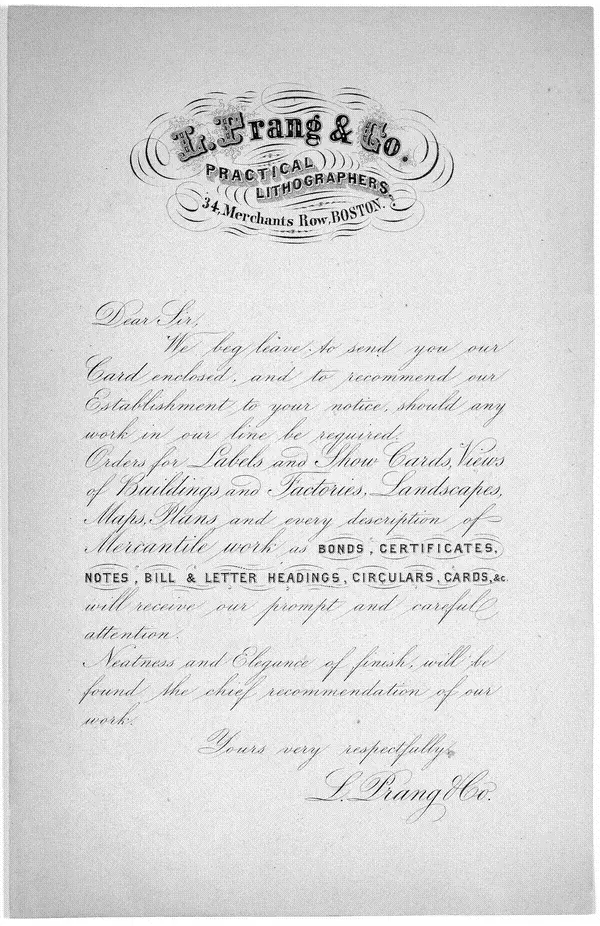 L. Prang & Co.
PRACTICAL
LITHOGRAPHERS,
34, Merchants Row, BOSTON.
Dear Sir,
We beg leave to send you our
Card enclosed, and to recommend our
Establishment to your notice, should any
work in our line be required.
Orders for Labels and Show Cards, Views
of Buildings and Factories, Landscapes,
Maps, Plans and every description of
Mercantile work as BONDS, CERTIFICATES,
NOTES, BILL & LETTER HEADINGS, CIRCULARS, CARDS, &c.
will receive our prompt and careful
attention.
Neatness and Elegance of finish, will be
found the chief recommendation of our
work.
Yours very respectfully,
L. Prang & Co.